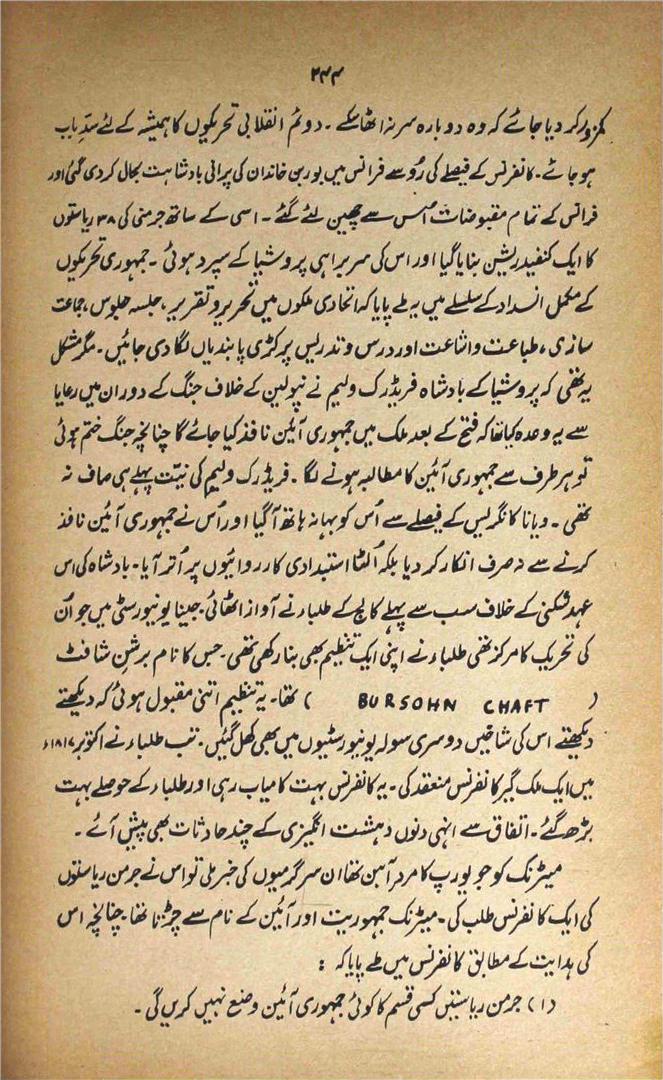 ۲۴۴
کمزور کر دیا جائے کہ وہ دوبارہ سر نہ اٹھا سکے ۔ دوئم انقلابی تحریکوں کا ہمیشہ کے لئے سدِّ باب
ہو جائے ۔ کانفرنس کے فیصلے کی رُو سے فرانس میں بوربن خاندان کی پرانی بادشاہت بحال کر دی گئی اور
فرانس کے تمام مقبوضات اُس سے چھین لئے گئے ۔ اسی کے ساتھ جرمنی کی ۳۸ ریاستوں
کا ایک کنفیڈریشن بنایا گیا اور اس کی سربراہی پروشیا کے سپرد ہوئی ۔ جمہوری تحریکوں
کے مکمل انسداد کے سلسلے میں یہ طے پایا کہ اتحادی ملکوں میں تحریر و تقریر ، جلسہ جلوس ، جماعت
سازی ، طباعت و اشاعت اور درس و تدریس پر کڑی پابندیاں لگا دی جائیں ۔ مگر مشکل
یہ تھی کہ پروشیا کے بادشاہ فریڈرک ولیم نے نپولین کے خلاف جنگ کے دوران میں رعایا
سے یہ وعدہ کیا تھا کہ فتح کے بعد ملک میں جمہوری آئین نافذ کیا جائے گا چنانچہ جنگ ختم ہوئی
تو ہر طرف سے جمہوری آئین کا مطالبہ ہونے لگا ۔ فریڈرک ولیم کی نیّت پہلے ہی صاف نہ
تھی ۔ ویانا کانگریس کے فیصلے سے اُس کو بہانہ ہاتھ آ گیا اور اُس نے جمہوری آئین نافذ
کرنے سے نہ صرف انکار کر دیا بلکہ اُلٹا استبدادی کارروائیوں پر اُتر آیا ۔ بادشاہ کی اس
عہد شکنی کے خلاف سب سے پہلے کالج کے طلباء نے آواز اٹھائی ۔ جینا یونیورسٹی میں جو اُن
کی تحریک کا مرکز تھی طلباء نے اپنی ایک تنظیم بھی بنا رکھی تھی جس کا نام برشن شافٹ
( BURSOHN CHAFT ) تھا ۔ یہ تنظیم اتنی مقبول ہوئی کہ دیکھتے
دیکھتے اس کی شاخیں دوسری سولہ یونیورسٹیوں میں بھی کھل گئیں ۔ تب طلباء نے اکتوبر ۱۸۱۷ء
میں ایک ملک گیر کانفرنس منعقد کی ۔ یہ کانفرنس بہت کامیاب رہی اور طلباء کے حوصلے بہت
بڑھ گئے ۔ اتفاق سے انہی دنوں دہشت انگیزی کے چند حادثات بھی پیش آئے ۔
میٹرنک کو جو یورپ کا مردِ آہن تھا ان سرگرمیوں کی خبر ملی تو اس نے جرمن ریاستوں
کی ایک کانفرنس طلب کی ۔ میٹرنک جمہوریت اور آئین کے نام سے چڑتا تھا چنانچہ اس
کی ہدایت کے مطابق کانفرنس میں طے پایا کہ :
(۱) جرمن ریاستیں کسی قسم کا کوئی جمہوری آئین وضع نہیں کریں گی ۔